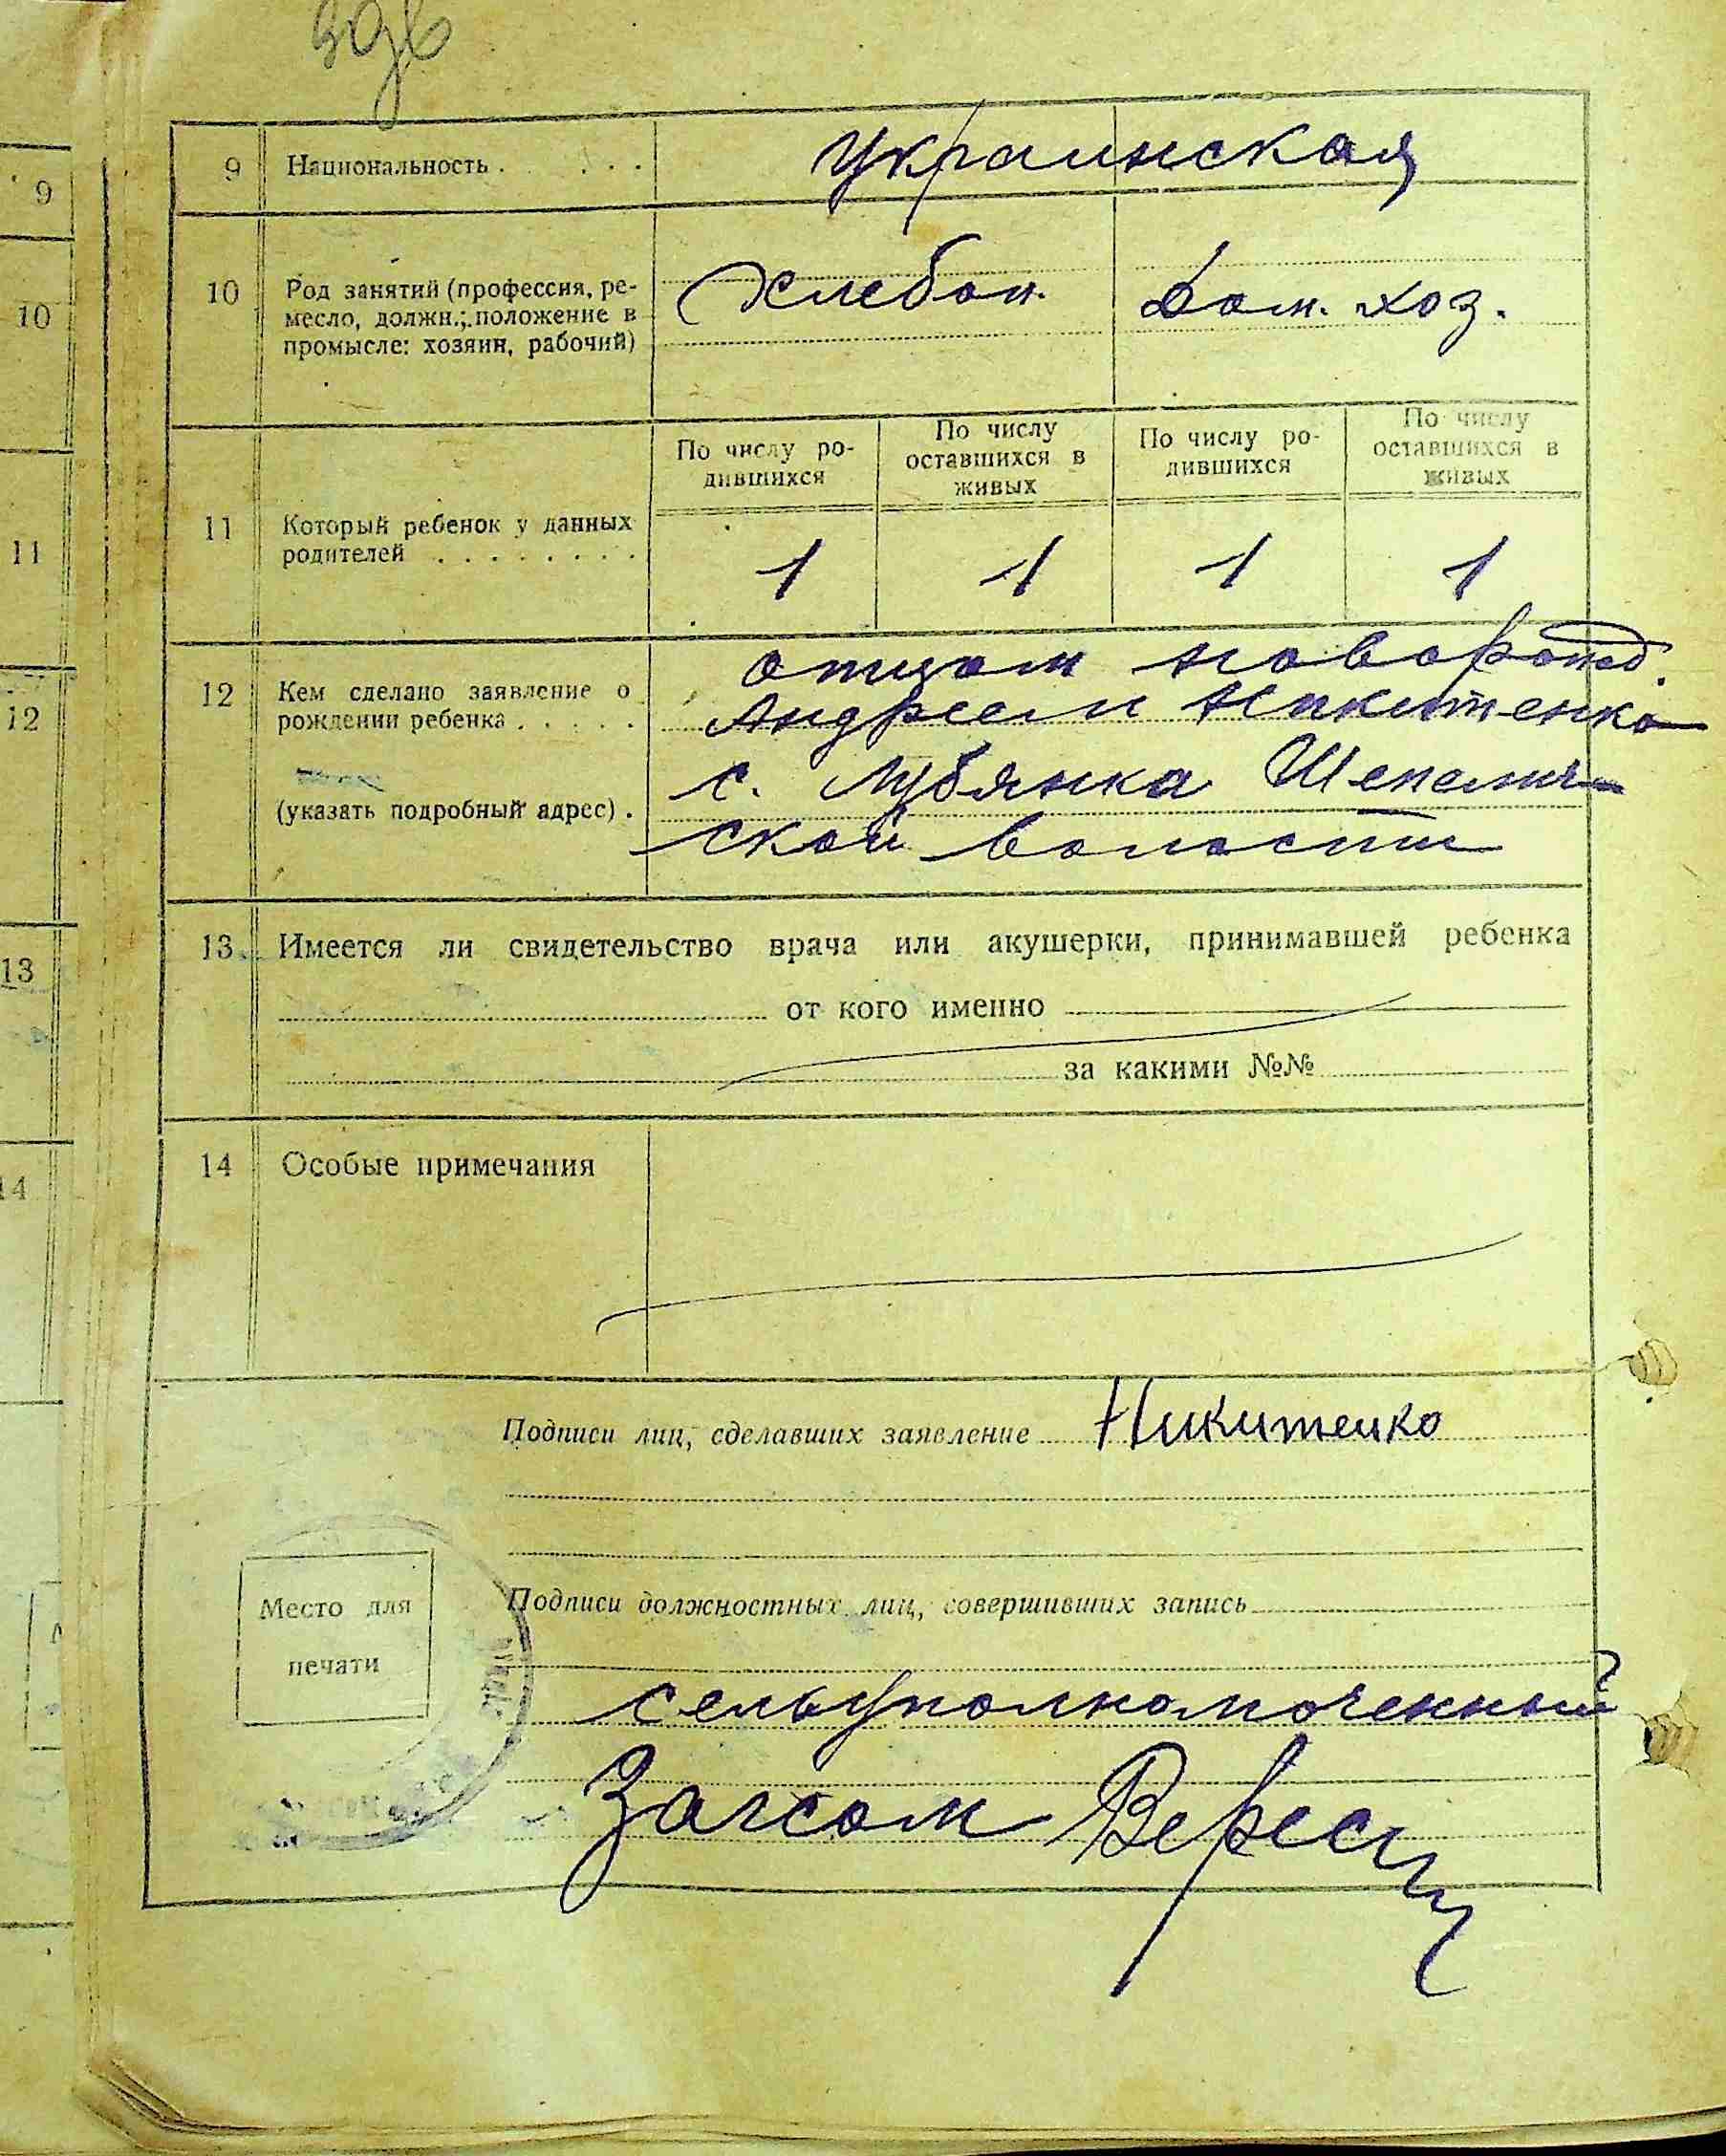 9
10
11
12
13
14
9 Национальность . . . . Украинская
10 Род занятий (профессия, ре-
месло, должн.; положение в
промысле: хозяин, рабочий)
Хлебоп. Дом. хоз.
По числу ро-
дившихся
По числу
оставшихся в
живых
По числу ро-
дившихся
По числу
оставшихся в
живых
11 Который ребенок у данных
родителей . . . . . . . .
1 1 1 1
12 Кем сделано заявление о
рождении ребенка . . . . .
(указать подробный адрес) .
отцом
Андреем Никитенко
с. Лубянка Шепелич-
ской волости
13. Имеется ли свидетельство врача или акушерки, принимавшей ребенка
от кого именно
за какими №№
14 Особые примечания
Подписи лиц, сделавших заявление Никитенко
Место для
печати
Подписи должностных лиц, совершивших запись
сельуполномоченный
Загсом